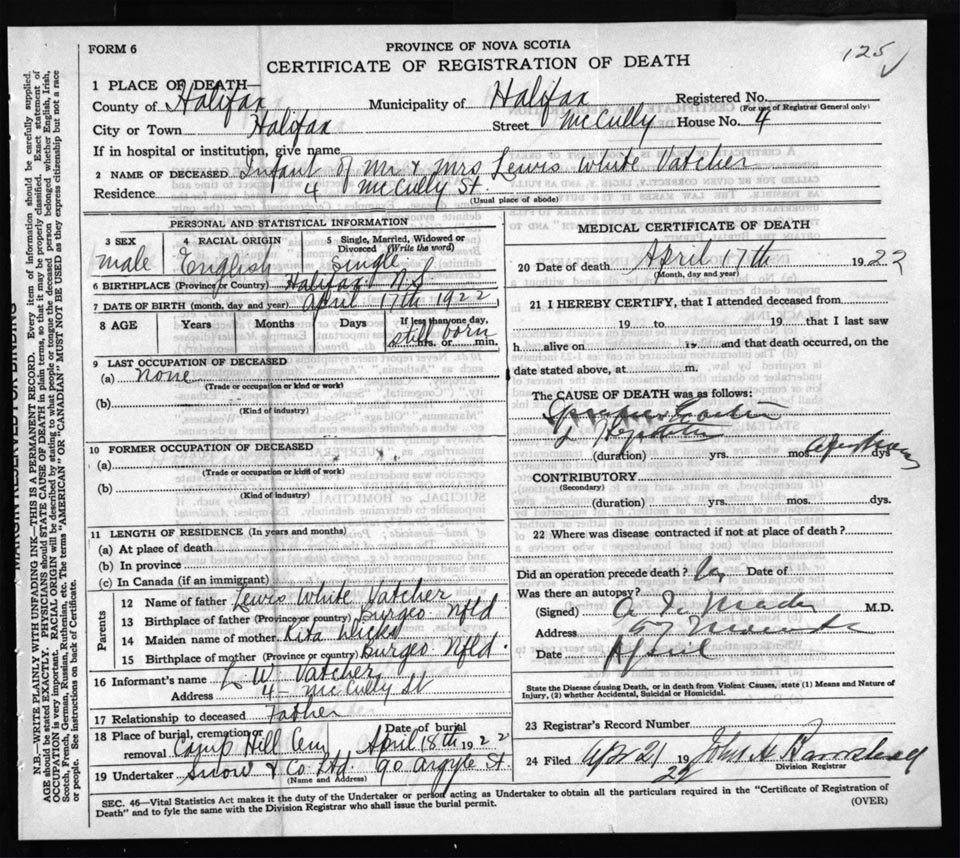 FORM 6
PROVINCE OF NOVA SCOTIA
125
CERTIFICATE OF REGISTRATION OF DEATH
1 PLACE OF DEATH—
County of Halifax Municipality of Halifax Registered No.
(For use of Registrar General only)
City or Town Halifax Street McCully House No. 4
If in hospital or institution, give name
2 NAME OF DECEASED Infant of Mr & Mrs Lewis White Vatcher
Residence 4 McCully St.
(Usual place of abode)
PERSONAL AND STATISTICAL INFORMATION
3 SEX male
4 RACIAL ORIGIN English
5 Single, Married, Widowed or Divorced (Write the word) Single
6 BIRTHPLACE (Province or Country) Halifax N S
7 DATE OF BIRTH (month, day and year) April 17th 1922
8 AGE Years Months Days If less than one day, hrs. or min. still born
9 LAST OCCUPATION OF DECEASED
(a) none
(Trade or occupation or kind of work)
(b)
(Kind of industry)
10 FORMER OCCUPATION OF DECEASED
(a)
(Trade or occupation or kind of work)
(b)
(Kind of industry)
11 LENGTH OF RESIDENCE (In years and months)
(a) At place of death
(b) In province
(c) In Canada (if an immigrant)
Parents
12 Name of father Lewis White Vatcher
13 Birthplace of father (Province or country) Burgeo Nfld
14 Maiden name of mother Rita Dicks
15 Birthplace of mother (Province or country) Burgeo Nfld.
16 Informant's name L W. Vatcher
Address 4 - McCully St
17 Relationship to deceased Father
18 Place of burial, cremation or removal Camp Hill Cem Date of burial April 18th 1922
19 Undertaker Snow & Co. Ltd. 90 Argyle St.
(Name and Address)
MEDICAL CERTIFICATE OF DEATH
20 Date of death April 17th 1922
(Month, day and year)
21 I HEREBY CERTIFY, that I attended deceased from
19 to 19 that I last saw
h alive on 19 and that death occurred, on the
date stated above, at m.
The CAUSE OF DEATH was as follows:
(duration) yrs. mos. dys
CONTRIBUTORY
(Secondary)
(duration) yrs. mos. dys.
22 Where was disease contracted if not at place of death?
Did an operation precede death? Date of
Was there an autopsy?
(Signed) Mader M.D.
Address
Date April
State the Disease causing Death, or in death from Violent Causes, state (1) Means and Nature of Injury, (2) whether Accidental, Suicidal or Homicidal.
23 Registrar's Record Number
24 Filed 21 19 22 John A
Division Registrar
SEC. 46—Vital Statistics Act makes it the duty of the Undertaker or person acting as Undertaker to obtain all the particulars required in the "Certificate of Registration of
Death" and to fyle the same with the Division Registrar who shall issue the burial permit.
(OVER)
MARGIN RESERVED FOR BINDING
N.B.—WRITE PLAINLY WITH UNFADING INK—THIS IS A PERMANENT RECORD. Every item of information should be carefully supplied.
AGE should be stated EXACTLY. PHYSICIANS should STATE CAUSE OF DEATH in plain terms, so that it may be properly classified. Exact statement of
OCCUPATION is very important. RACIAL ORIGIN will be described by stating to what people or tongue the deceased person belonged whether English, Irish,
Scotch, French, German, Russian, Ruthenian, etc. The terms "AMERICAN" OR "CANADIAN" MUST NOT BE USED as they express citizenship but not a race
or people. See instructions on back of Certificate.